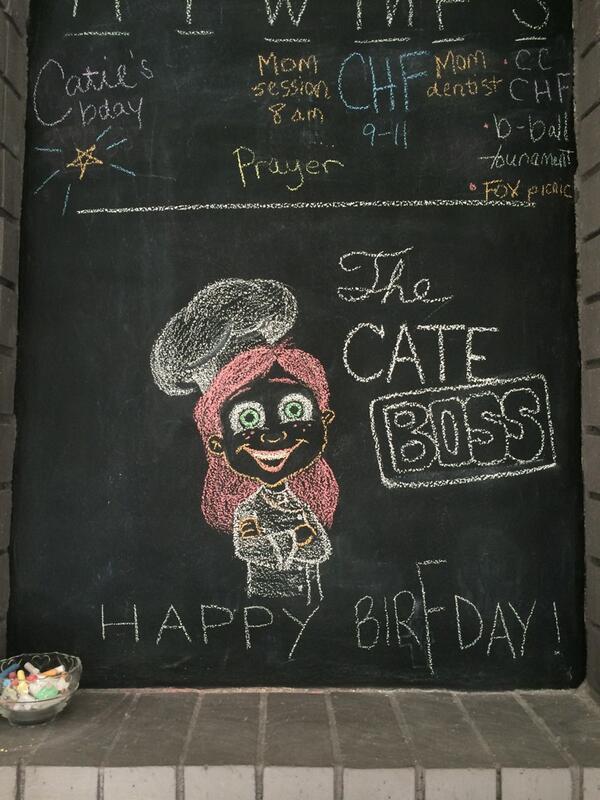 M T W TH F S
Catie's
bday
Mom
session
8 am
Prayer
CHF
9-11
Mom
dentist
• CC
CHF
• b-ball
tounament
• FOX picnic
The
CATE
BOSS
HAPPY BIRFDAY!